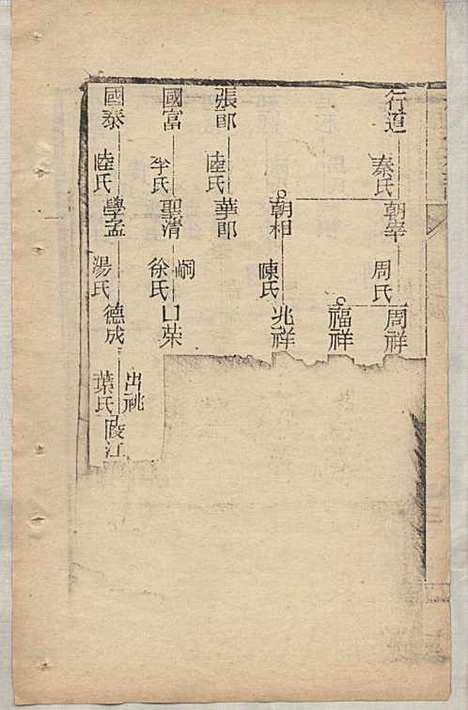 行道 秦氏 朝宰 周氏 周祥
福祥
朝相 陳氏 兆祥
張郎 陸氏 華郎
國富 李氏 聖清 嗣 徐氏 榮
國泰 陸氏 學孟 湯氏 德成 出祧 葉氏 陵江